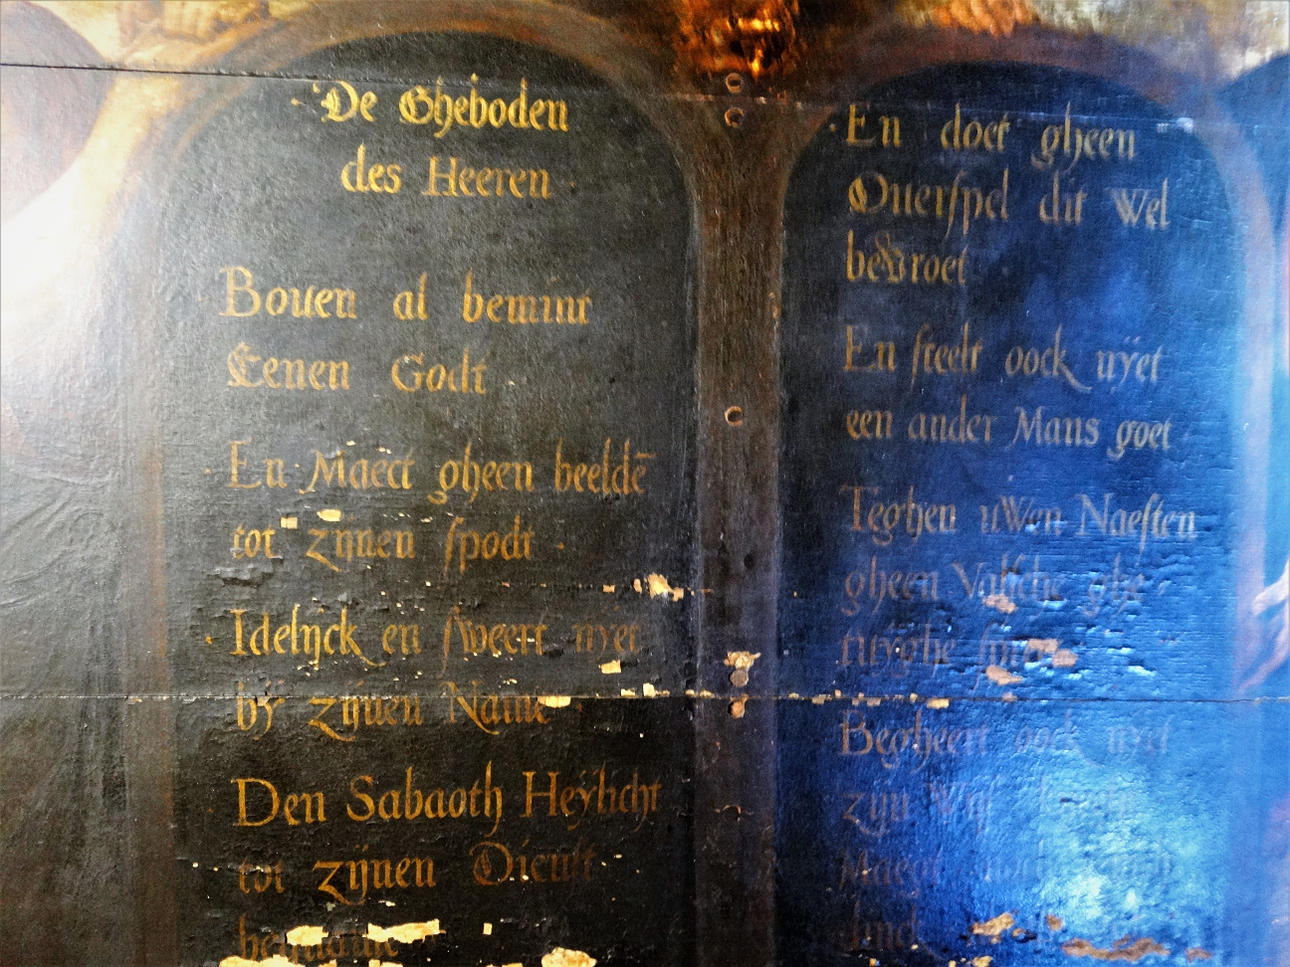 De Gheboden
des Heeren
Bouen al bemint
Eenen Godt
En Maect gheen beeldē
tot zijnen spodt
Idelijck en sweert nÿet
bÿ zijnen Name
Den Sabaoth Heÿlicht
tot zijnen Dienst
En doet gheen
Ouerspel dit wel
bevroet
En steelt oock nÿet
een ander Mans goet
Teghen uwen Naesten
gheen Valsche ghe-
tuÿghe
Begheert oock nÿet
zijn Wijf
Maeght